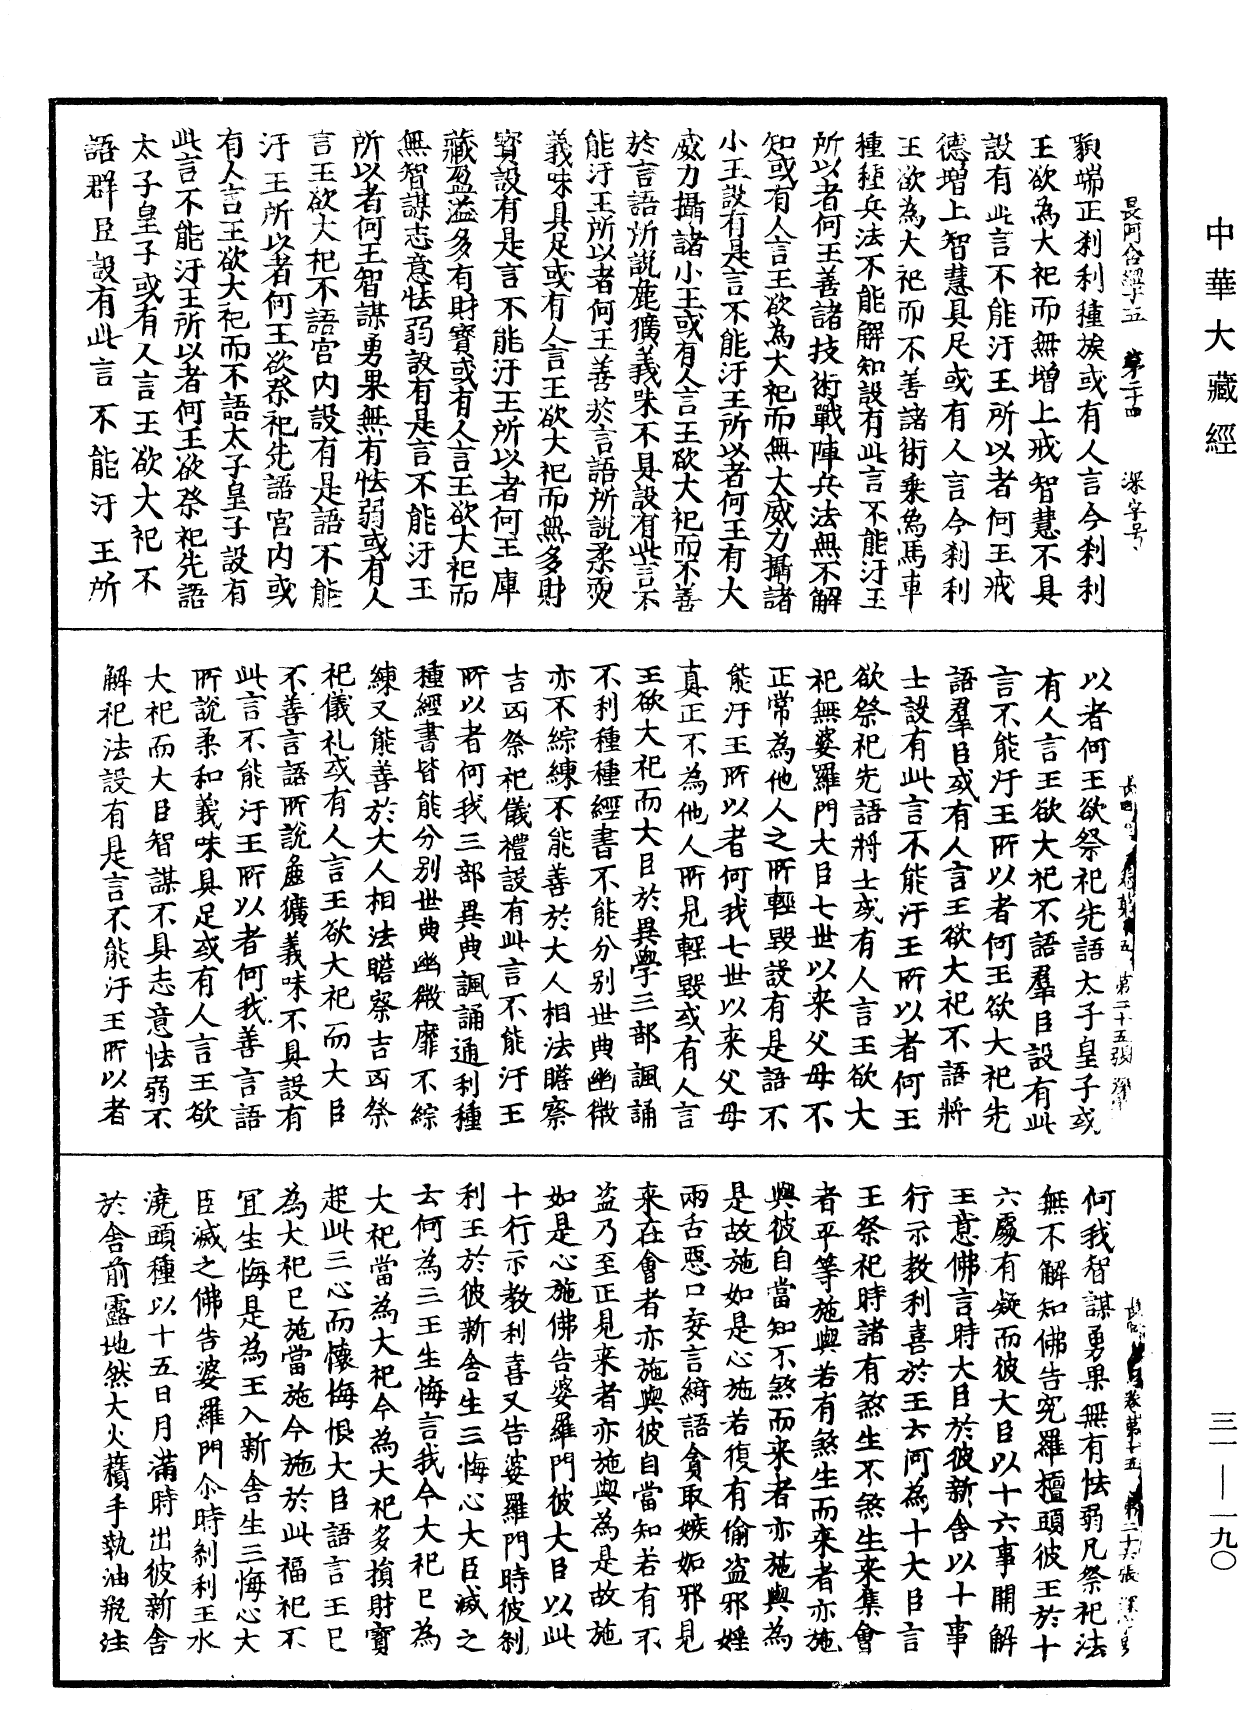 中華大藏經
長阿含經十五 第二十四 深字号
貌端正刹利種族或有人言今刹利
王欲為大祀而無增上戒智慧不具
設有此言不能汙王所以者何王戒
德增上智慧具足或有人言今刹利
王欲為大祀而不善諸術乗為馬車
種種兵法不能解知設有此言不能汙王
所以者何王善諸技術戰陣兵法無不解
知或有人言王欲為大祀而無大威力攝諸
小王設有是言不能汙王所以者何王有大
威力攝諸小王或有人言王欲大祀而不善
於言語所說麁獷義味不具設有此言不
能汙王所以者何王善於言語所說柔耎
義味具足或有人言王欲大祀而無多財
寳設有是言不能汙王所以者何王庫
藏盈溢多有財寳或有人言王欲大祀而
無智謀志意怯弱設有是言不能汙王
所以者何王智謀勇果無有怯弱或有人
言王欲大祀不語宫内設有是語不能
汙王所以者何王欲祭祀先語宫内或
有人言王欲大祀而不語太子皇子設有
此言不能汙王所以者何王欲祭祀先語
太子皇子或有人言王欲大祀不
語群臣設有此言不能汙王所
以者何王欲祭祀先語太子皇子或
有人言王欲大祀不語羣臣設有此
言不能汙王所以者何王欲大祀先
語羣臣或有人言王欲大祀不語將
士設有此言不能汙王所以者何王
欲祭祀先語將士或有人言王欲大
祀無婆羅門大臣七世以来父母不
正常為他人之所輕毀設有是語不
能汙王所以者何我七世以来父母
真正不為他人所見輕毀或有人言
王欲大祀而大臣於異學三部諷誦
不利種種經書不能分别世典幽微
亦不綜練不能善於大人相法瞻察
吉凶祭祀儀禮設有此言不能汙王
所以者何我三部異典諷誦通利種
種經書皆能分别世典幽微靡不綜
練又能善於大人相法瞻察吉凶祭
祀儀礼或有人言王欲大祀而大臣
不善言語所說麁獷義味不具設有
此言不能汙王所以者何我善言語
所說柔和義味具足或有人言王欲
大祀而大臣智謀不具志意怯弱不
解祀法設有是言不能汙王所以者
第二十五張
何我智謀勇果無有怯弱凡祭祀法
無不解知佛告究羅檀頭彼王於十
六處有疑而彼大臣以十六事開解
王意佛言時大臣於彼新舍以十事
行示教利喜於王云何為十大臣言
王祭祀時諸有煞生不煞生来集會
者平等施與若有煞生而来者亦施
與彼自當知不煞而来者亦施與為
是故施如是心施若復有偷盜邪婬
兩舌惡口妄言綺語貪取嫉妬邪見
来在會者亦施與彼自當知若有不
盜乃至正見来者亦施與為是故施
如是心施佛告婆羅門彼大臣以此
十行示教利喜又告婆羅門時彼刹
利王於彼新舍生三悔心大臣滅之
云何為三王生悔言我今大祀已為
大祀當為大祀今為大祀多損財寳
起此三心而懷悔恨大臣語言王已
為大祀已施當施今施於此福祀不
宜生悔是為王入新舍生三悔心大
臣滅之佛告婆羅門尒時刹利王水
澆頭種以十五日月滿時出彼新舍
於舍前露地然大火積手執油瓶注
卷第十五 第二十六張
三一—一九〇